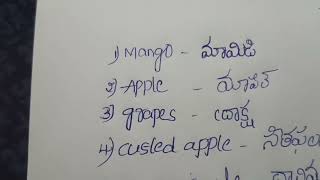 1) Mango - మామిడి
2) Apple - యాపిల్
3) grapes - ద్రాక్ష
4) custed apple - సీతఫలం